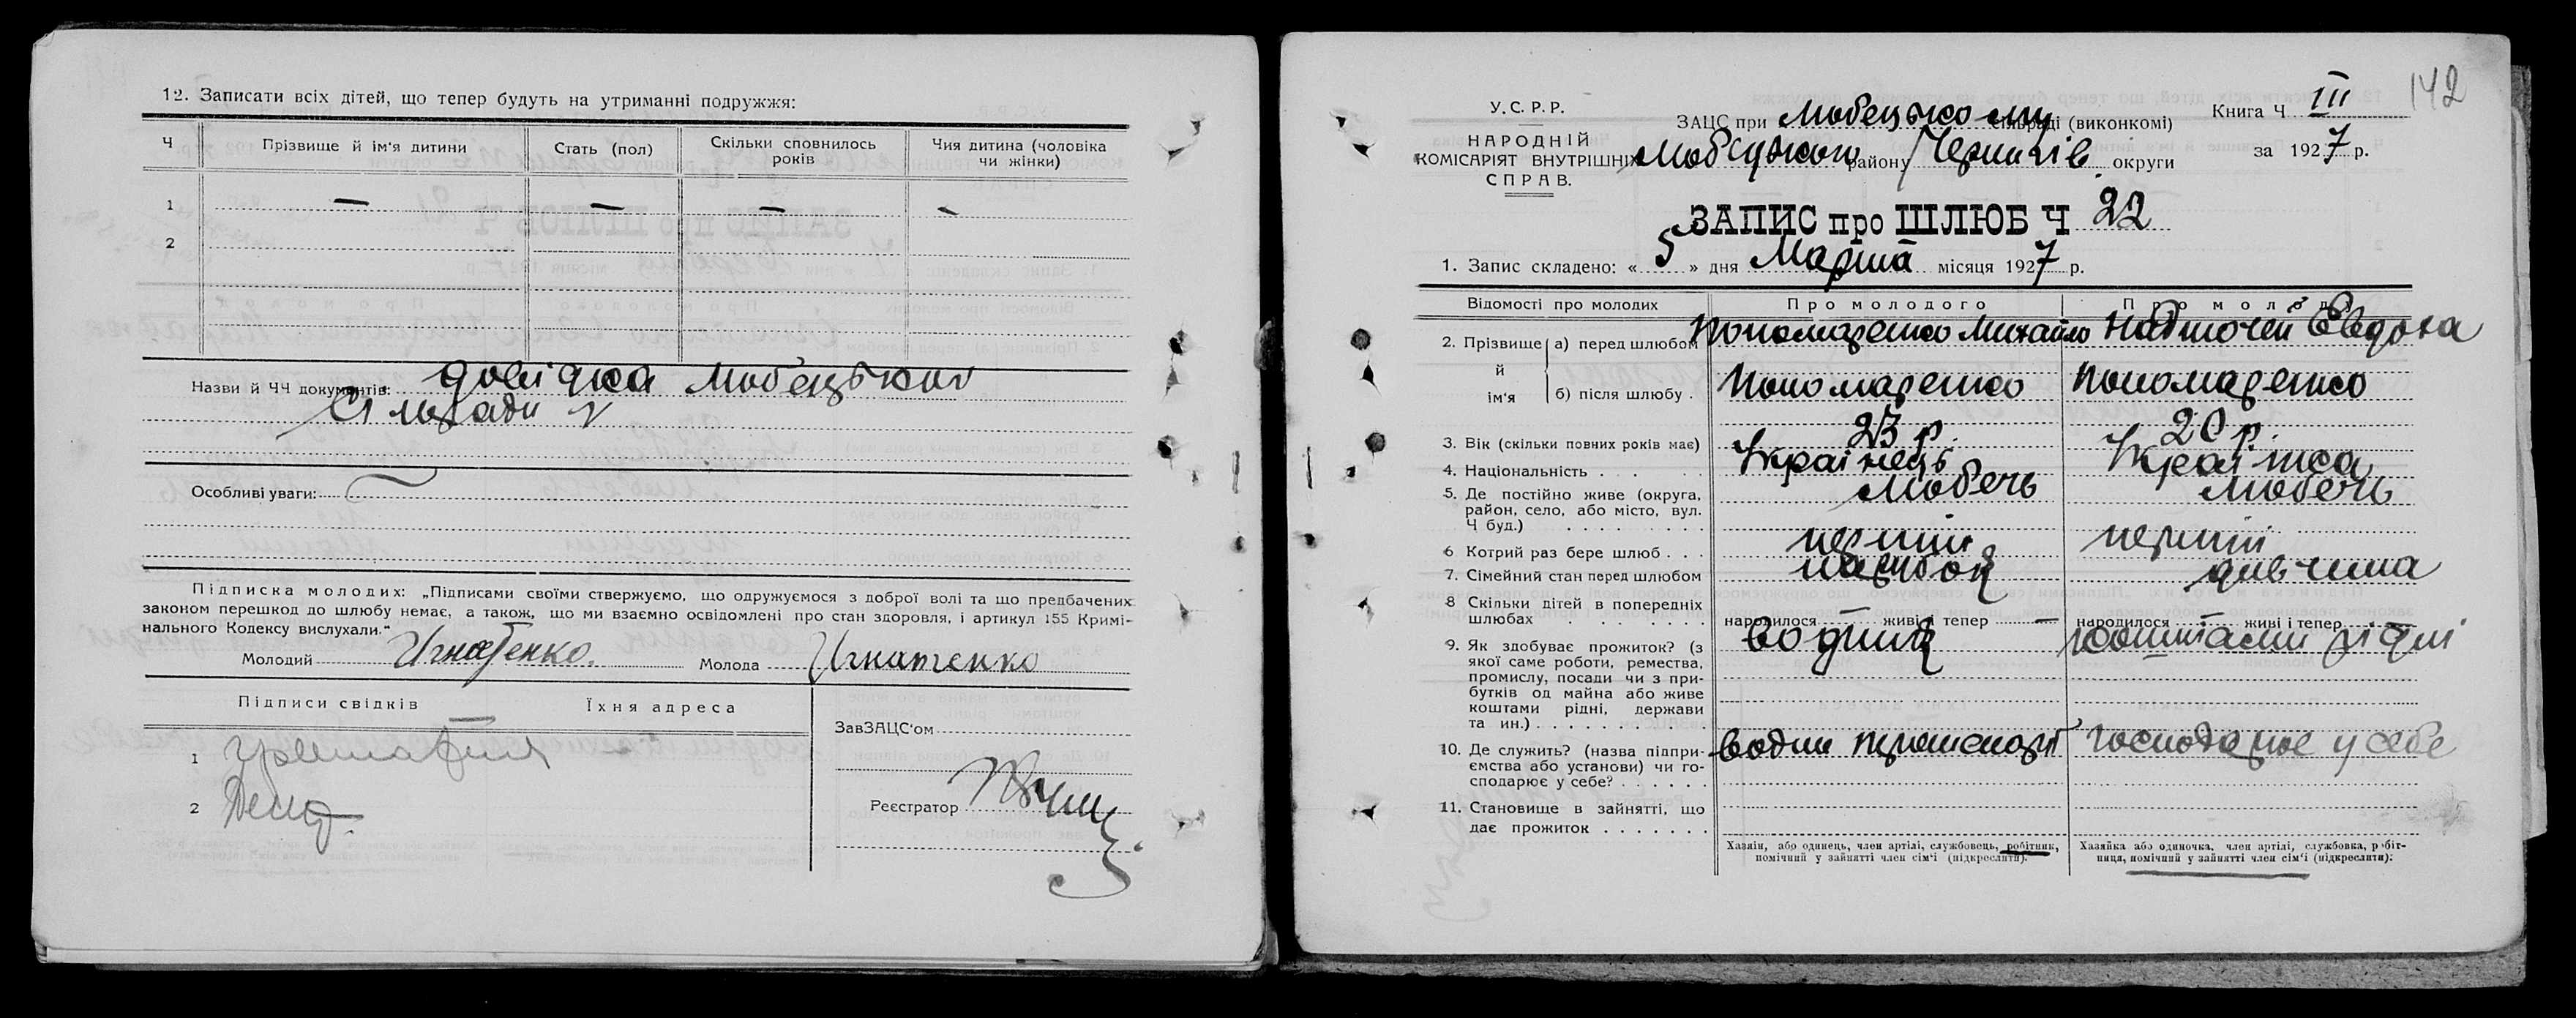 12. Записати всіх дітей, що тепер будуть на утриманні подружжя:
Ч Прізвище й ім'я дитини Стать (пол) Скільки сповнилось років Чия дитина (чоловіка чи жінки)
1 — — — —
2
Назви й ЧЧ документів: довідка Любецької
Сільради
Особливі уваги:
Підписка молодих: „Підписами своїми стверджуємо, що одружуємося з доброї волі та що предбачених
законом перешкод до шлюбу немає, а також, що ми взаємно освідомлені про стан здоровля, і артикул 155 Кримі-
нального Кодексу вислухали.“
Молодий Игнатенко. Молода Игнатенко
Підписи свідків Їхня адреса
ЗавЗАЦС'ом
1
2
Реєстратор
142
У.С.Р.Р.
НАРОДНІЙ
КОМІСАРІЯТ ВНУТРІШНІХ
СПРАВ.
ЗАЦС при Любецькому сільраді (виконкомі)
Любецького району Чернигів. округи
Книга Ч III
за 1927 р.
ЗАПИС про ШЛЮБ Ч 22
1. Запис складено: « 5 » дня Марта місяця 1927 р.
Відомості про молодих Про молодого Про молоду
2. Прізвище й ім'я а) перед шлюбом Пономаренко Михайло Надточей Евдока
б) після шлюбу . Пономаренко Пономаренко
3. Вік (скільки повних років має) 23 р. 20 р.
4. Національність . . . Українець Українка
5. Де постійно живе (округа, район, село, або місто, вул. Ч буд.) . . . Любечь Любечь
6 Котрий раз бере шлюб . . . перший перший
7. Сімейний стан перед шлюбом парубок дивчина
8 Скільки дітей в попередніх шлюбах . . . народилося — живі і тепер — народилося — живі і тепер
9. Як здобуває прожиток? (з якої саме роботи, ремества, промислу, посади чи з прибутків од майна або живе коштами рідні, держави та ин.) . . . водник коштами рідні
10. Де служить? (назва підпри-ємства або установи) чи го-сподарює у себе? . . . водни Господарює у себе
11. Становище в зайнятті, що дає прожиток . . .
Хазяїн, або одинець, член артілі, службовець, робітник, помічний у зайнятті член сім'ї (підкреслити).
Хазяйка або одиночка, член артілі, службовка, робіт-ниця, помічний у зайнятті член сім'ї (підкреслити):